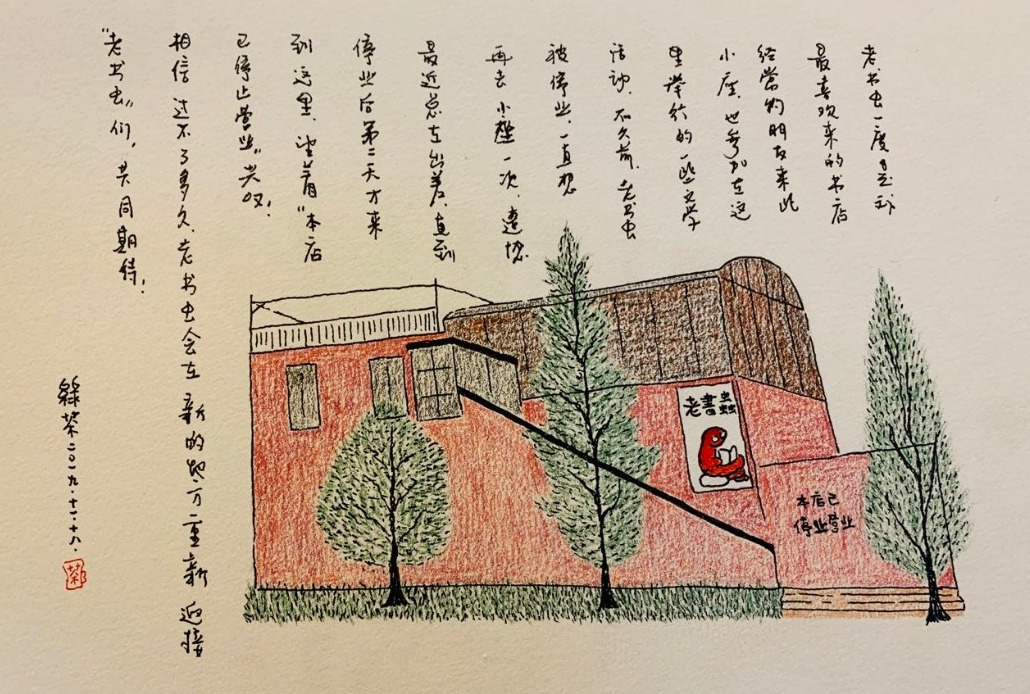 老书虫一度是我
最喜欢来的书店
经常约朋友来此
小座,也参加在这
里举行的一些文学
活动,不久前,老书虫
被停业,一直想
再去小座一次,遗憾
最近总在出差,直到
停业后第二天才来
到这里,望着"本店
已停止营业"兴叹!
相信过不了多久,老书虫会在新的地方重新迎接
"老书虫"们,共同期待!
綠茶二〇一九·十一·十八.
老書蟲
本店已
停业营业